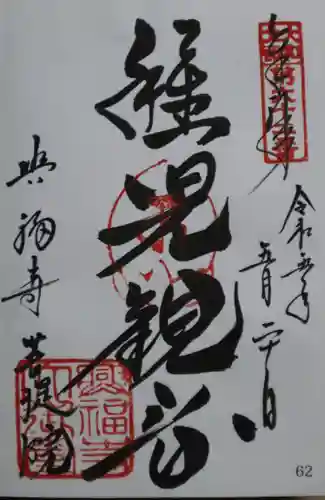 令和五年
五月二十日
稚児観音
興福寺 菩提院
興福寺
62